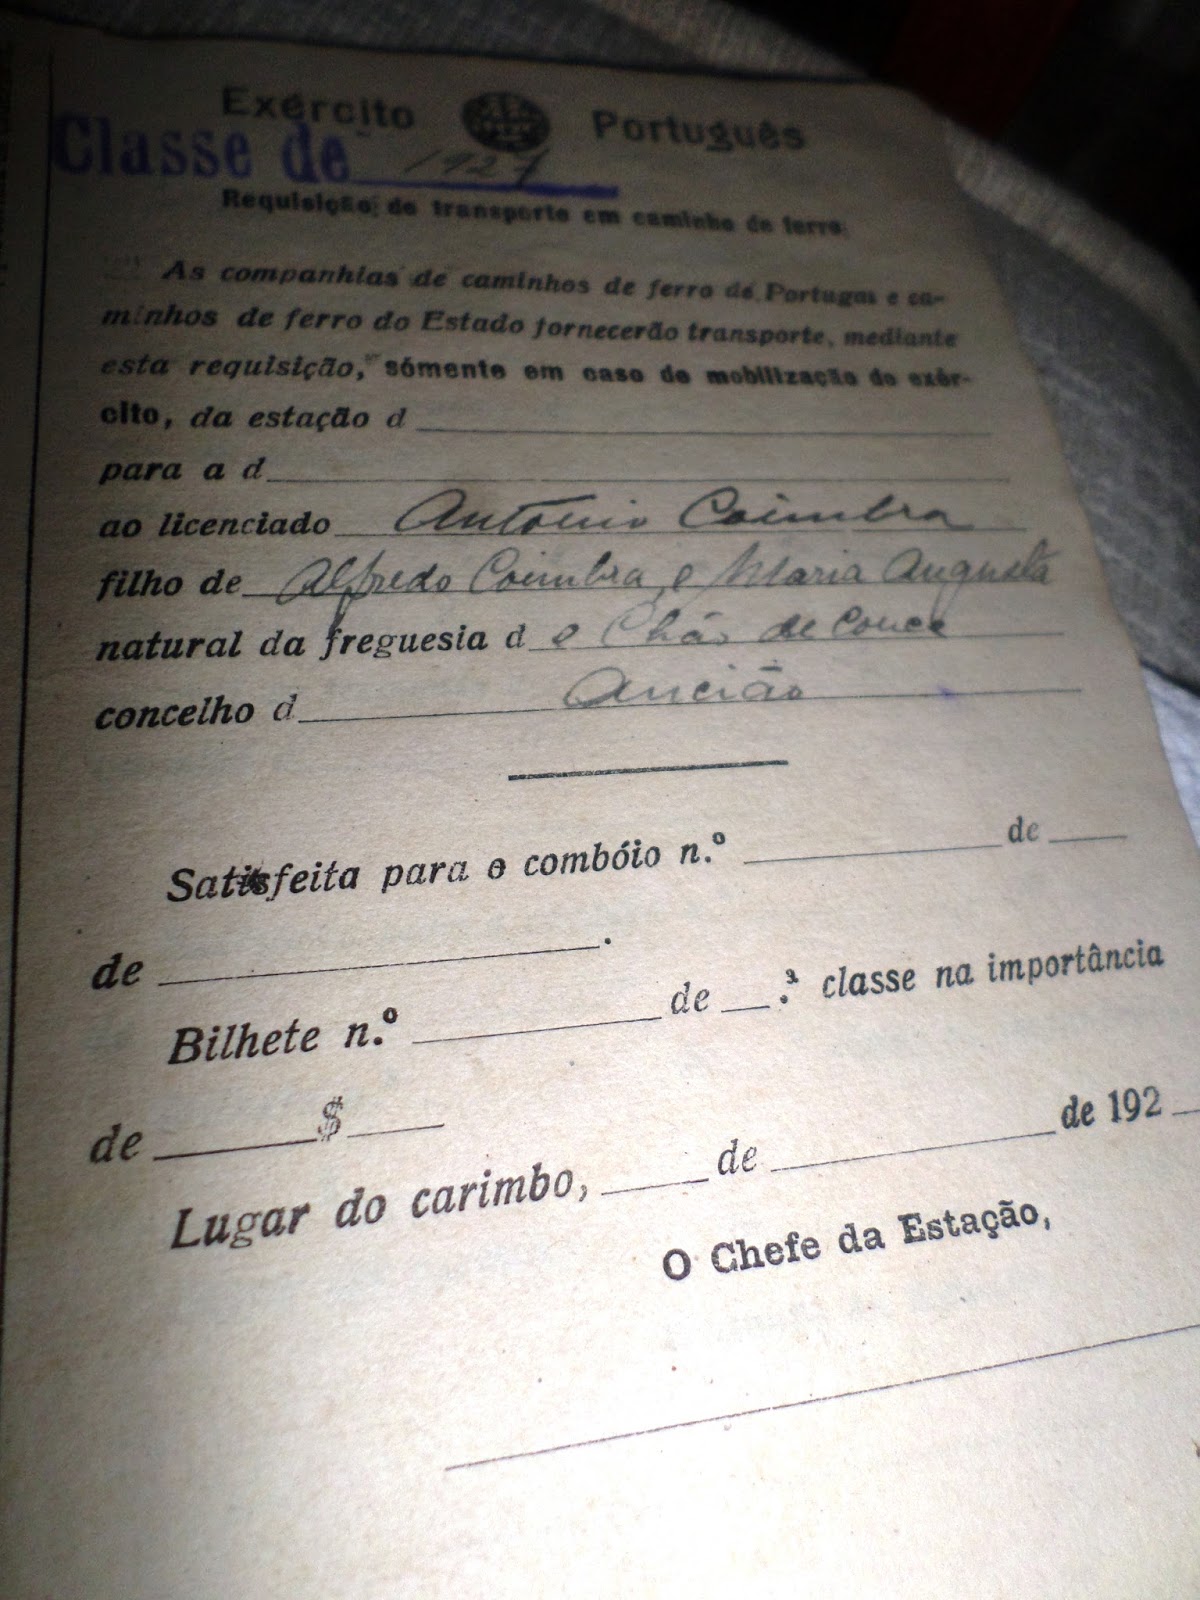 Exército Português
Classe de 1927
Requisição de transporte em caminho de ferro
As companhias de caminhos de ferro de Portugal e ca-
minhos de ferro do Estado fornecerão transporte, mediante
esta requisição, sómente em caso de mobilização do exér-
cito, da estação d
para a d
ao licenciado António Coimbra
filho de Alfredo Coimbra e Maria Augusta
natural da freguesia d e Chão de Couce
concelho d Ancião
Satisfeita para o combóio n.º de
de .
Bilhete n.º de .ª classe na importância
de $
Lugar do carimbo, de de 192
O Chefe da Estação,